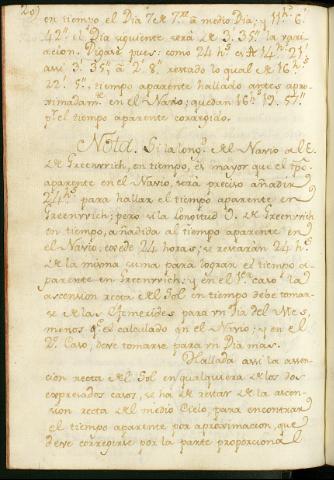 20)
en tiempo el Dia 7 de 7.re à medio Dia; y 11.hs 6.'
42." el Dia siguiente será de 3.' 35." la vari
acion. Digase pues: como 24 hs es à 14.hs 21.'
assi 3.' 35." à 2.' 8." restado lo qual de 16.hs
22.' 5." tiempo aparente hallado antes apro-
ximadam.te en el Navio; quedan 16.hs 19.' 57."
p.r el tiempo aparente corregido.
Nota. Si la long.d del Navio al E.
de Greenvvich, en tiempo, es mayor que el tpõ.
aparente en el Navio, será preciso añadir
24 hs para hallar el tiempo aparente en
Greenvvich; pero si la Lonoitud O. de Greenvvich
en tiempo, añadida al tiempo aparente en
el Navio, excede 24 horas, se restarán 24 hs
de la misma suma para lograr el tiempo a
parente en Greenvvich; y en el 1.er caso la
ascension recta del Sol en tiempo debe tomar-
se de las Efemerides para vn dia del Mes,
menos q.e el calculado en el Navio; y en el
2.º Caso, deve tomarse para vn Dia mas.
Hallada assi la ascen-
cion recta del Sol en qualquiera de los dos
expresados casos, se ha de restar de la ascen-
sion recta del medio Cielo, para encontrar
el tiempo aparente por aproximacion, que
deve corregirse por la parte proporcional